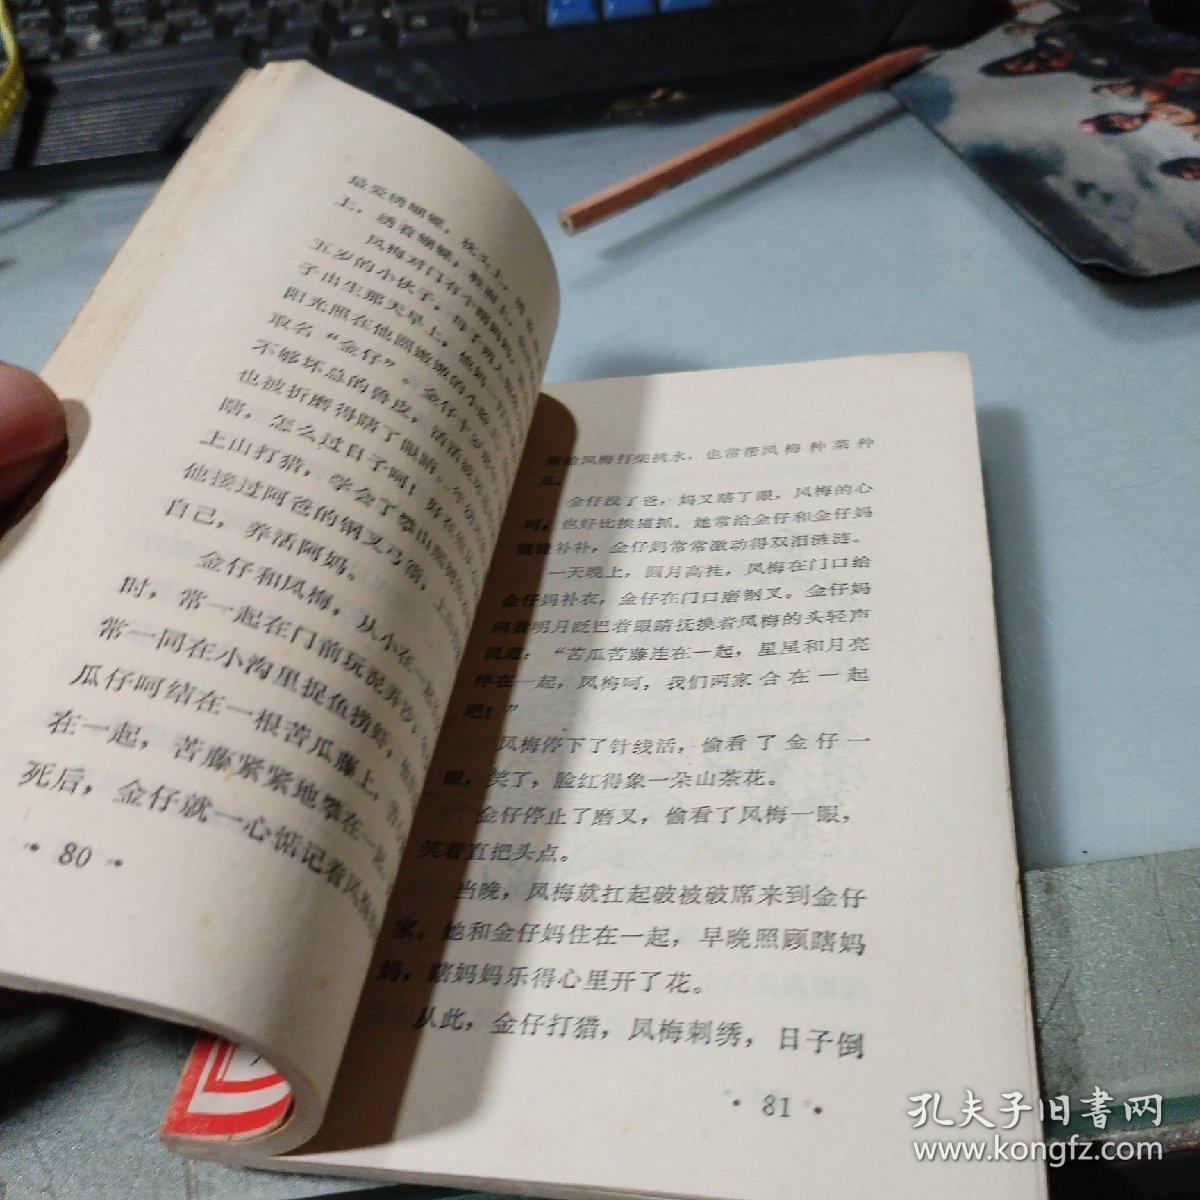 最爱绣蝴蝶，枕头上，绣着
上，绣着蝴蝶，鞋
凤梅对门有个瞎妈妈，
五岁的小伙子，母子两人
子出生那天早上，他妈一
阳光照在他圆嫩嫩的小脸
取名“金仔”。金仔七岁
不够坏总的兽皮，活活
也被折磨得瞎了眼睛。
瞎，怎么过日子呵！
上山打猎，学会了攀山
他接过阿爸的钢叉弓弩，上
自己，养活阿妈。
金仔和凤梅，从小在一
时，常一起在门前玩泥弄沙，
常一同在小沟里捉鱼捞虾，
瓜仔呵结在一根苦瓜藤上，
在一起，苦藤紧紧地攀在一起
死后，金仔就一心惦记着凤梅
• 80 •
常给凤梅打柴挑水，也常帮凤梅种菜种
瓜。
金仔没了爸，妈又瞎了眼，凤梅的心
呵，也好比挨猫抓。她常给金仔和金仔妈
缝缝补补，金仔妈常常激动得双泪涟涟。
一天晚上，圆月高挂，凤梅在门口给
金仔妈补衣，金仔在门口磨钢叉。金仔妈
向着明月眨巴着眼睛抚摸着凤梅的头轻声
说道：“苦瓜苦藤连在一起，星星和月亮
伴在一起，凤梅呵，我们两家合在一起
吧！”
凤梅停下了针线活，偷看了金仔一
眼，笑了，脸红得象一朵山茶花。
金仔停止了磨叉，偷看了凤梅一眼，
笑着直把头点。
当晚，凤梅就扛起破被破席来到金仔
家。她和金仔妈住在一起，早晚照顾瞎妈
妈，瞎妈妈乐得心里开了花。
从此，金仔打猎，凤梅刺绣，日子倒
• 81 •
孔夫子旧书网
www.kongfz.com